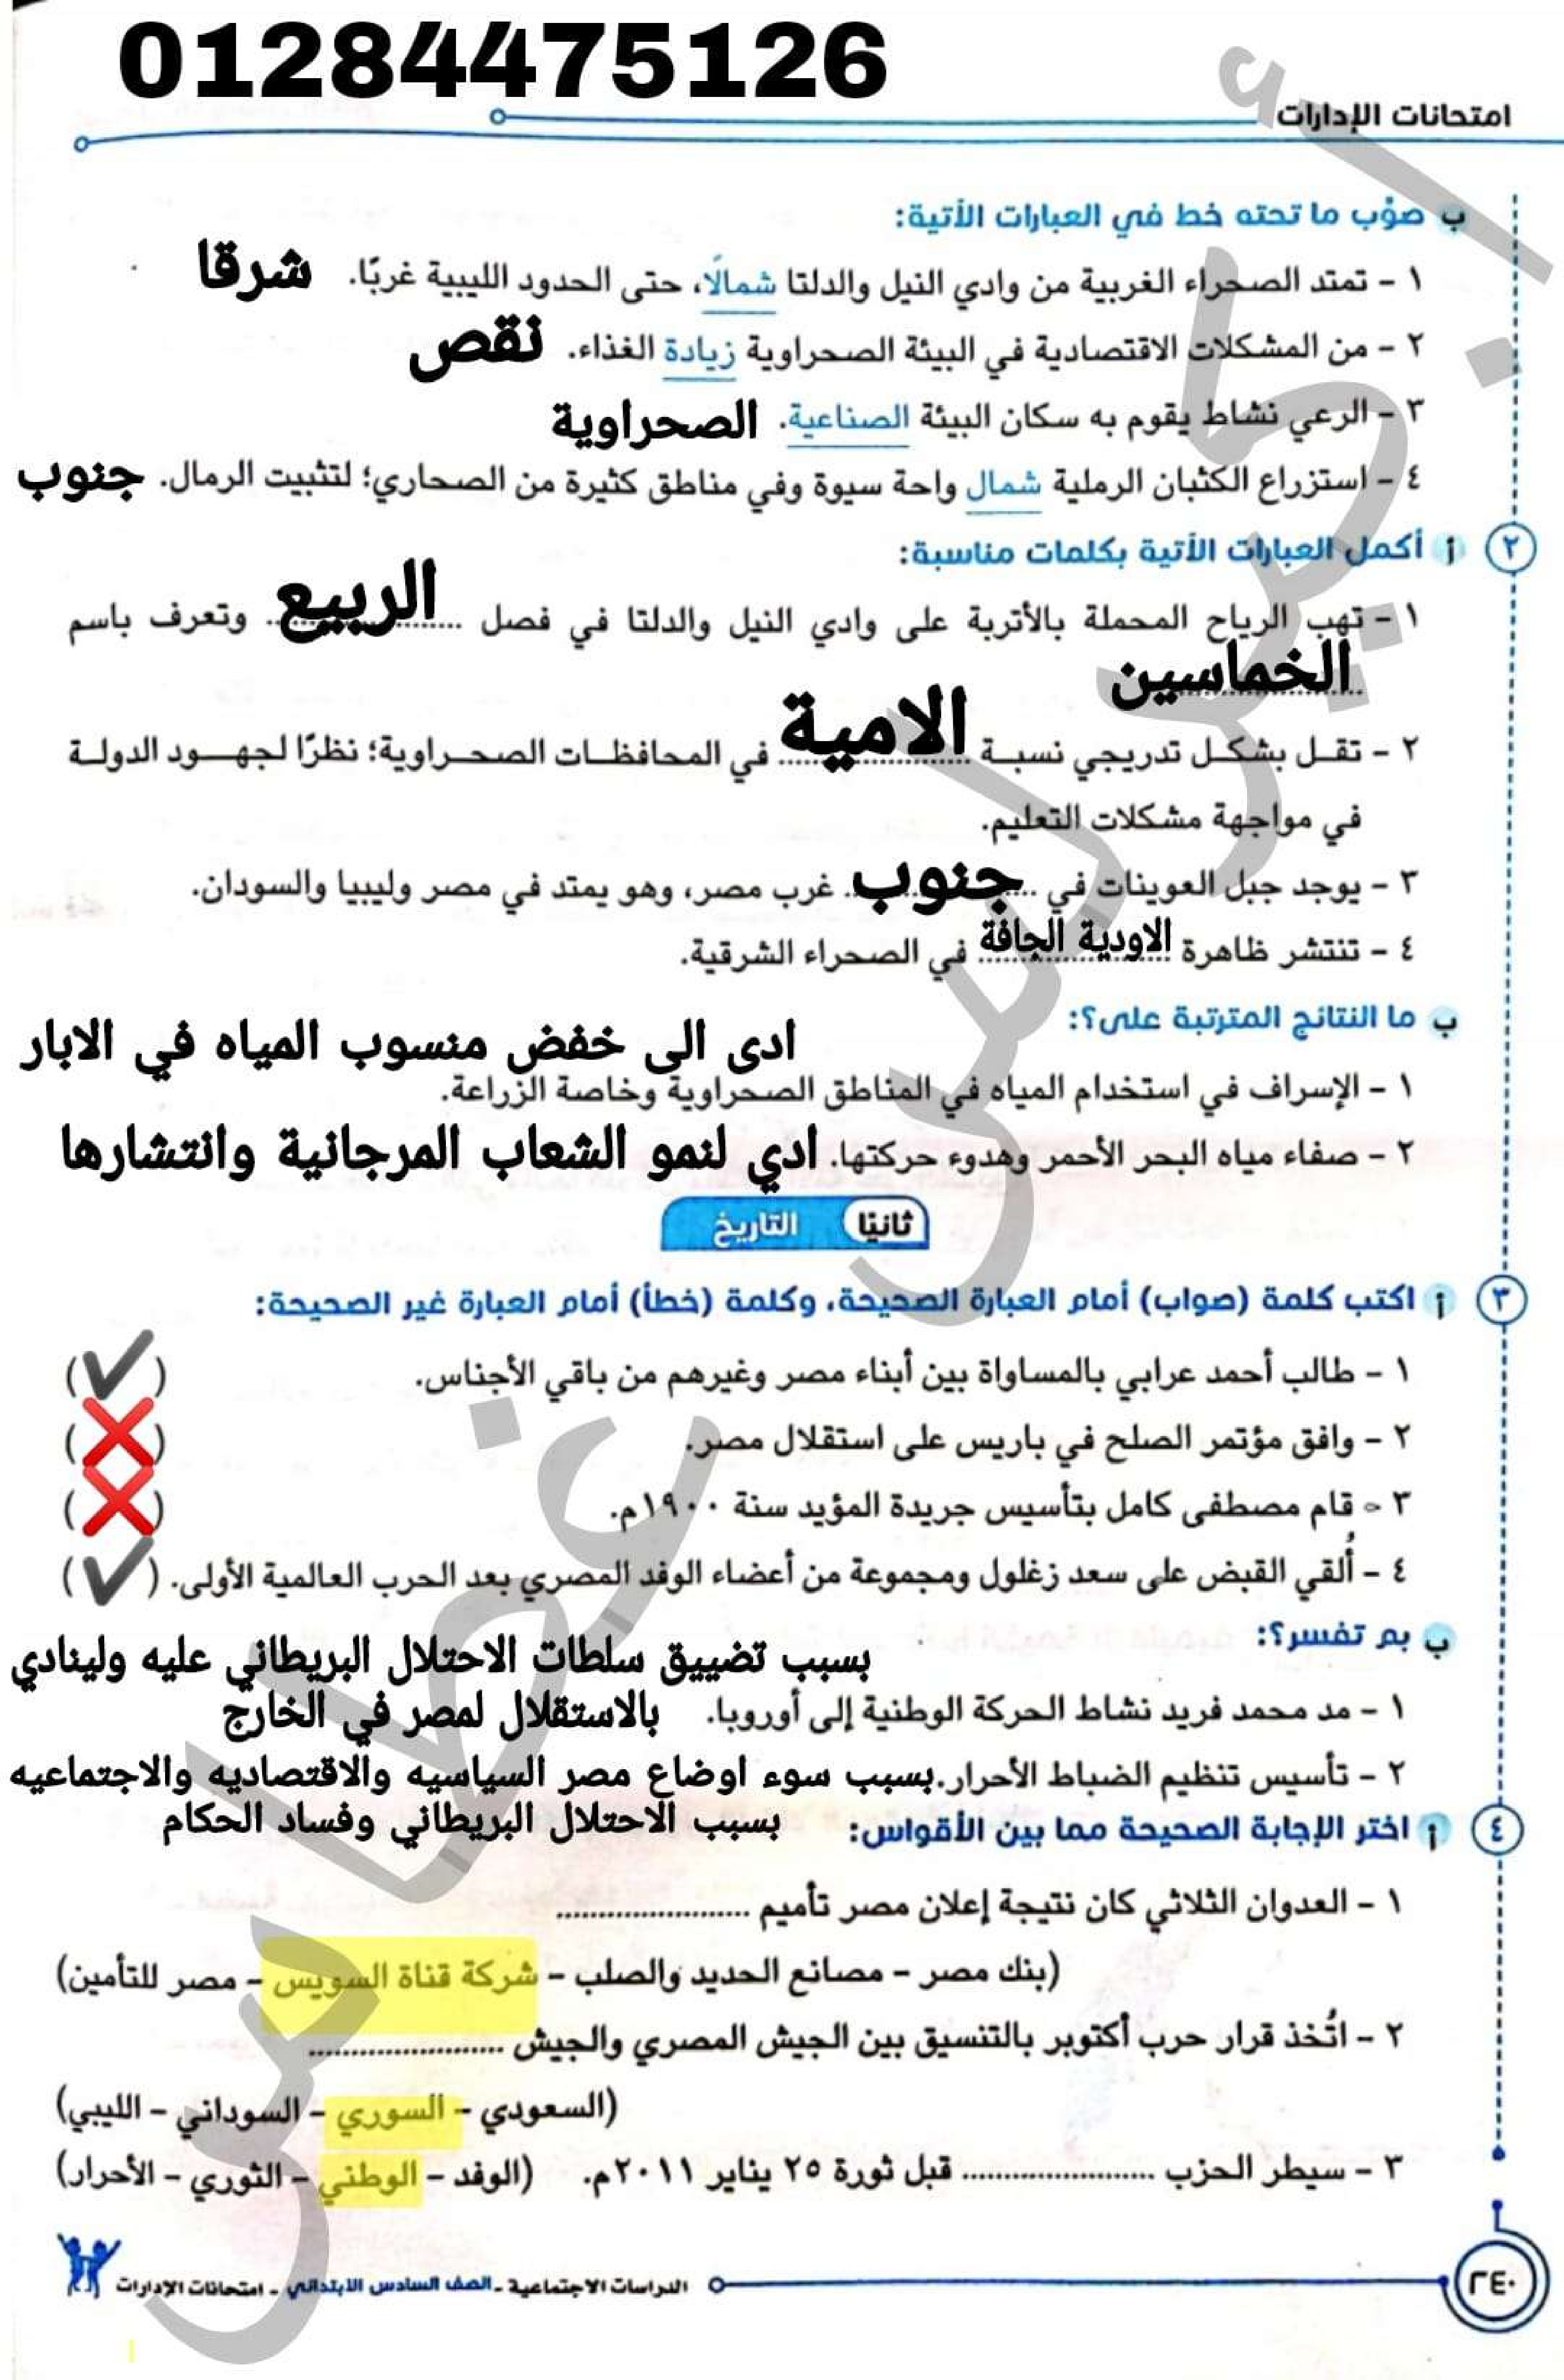 01284475126
امتحانات الإدارات
ب صوّب ما تحته خط في العبارات الآتية:
١ - تمتد الصحراء الغربية من وادي النيل والدلتا شمالًا، حتى الحدود الليبية غربًا. شرقا
٢ - من المشكلات الاقتصادية في البيئة الصحراوية زيادة الغذاء. نقص
٣ - الرعي نشاط يقوم به سكان البيئة الصناعية. الصحراوية
٤ - استزراع الكثبان الرملية شمال واحة سيوة وفي مناطق كثيرة من الصحاري؛ لتثبيت الرمال. جنوب
٢ أ أكمل العبارات الآتية بكلمات مناسبة:
١ - تهب الرياح المحملة بالأتربة على وادي النيل والدلتا في فصل الربيع وتعرف باسم
الخماسين
٢ - تقـل بشكـل تدريجي نسبـة الامية في المحافظـات الصحـراوية؛ نظرًا لجهـود الدولـة
في مواجهة مشكلات التعليم.
٣ - يوجد جبل العوينات في جنوب غرب مصر، وهو يمتد في مصر وليبيا والسودان.
٤ - تنتشر ظاهرة الاودية الجافة في الصحراء الشرقية.
ب ما النتائج المترتبة على؟:
ادى الى خفض منسوب المياه في الابار
١ - الإسراف في استخدام المياه في المناطق الصحراوية وخاصة الزراعة.
٢ - صفاء مياه البحر الأحمر وهدوء حركتها. ادي لنمو الشعاب المرجانية وانتشارها
ثانيًا التاريخ
٣ أ اكتب كلمة (صواب) أمام العبارة الصحيحة، وكلمة (خطأ) أمام العبارة غير الصحيحة:
١ - طالب أحمد عرابي بالمساواة بين أبناء مصر وغيرهم من باقي الأجناس. (✔)
٢ - وافق مؤتمر الصلح في باريس على استقلال مصر. (❌)
٣ - قام مصطفى كامل بتأسيس جريدة المؤيد سنة ١٩٠٠م. (❌)
٤ - أُلقي القبض على سعد زغلول ومجموعة من أعضاء الوفد المصري بعد الحرب العالمية الأولى. (✔)
ب بم تفسر؟:
بسبب تضييق سلطات الاحتلال البريطاني عليه ولينادي
١ - مد محمد فريد نشاط الحركة الوطنية إلى أوروبا. بالاستقلال لمصر في الخارج
٢ - تأسيس تنظيم الضباط الأحرار. بسبب سوء اوضاع مصر السياسيه والاقتصاديه والاجتماعيه
بسبب الاحتلال البريطاني وفساد الحكام
٤ أ اختر الإجابة الصحيحة مما بين الأقواس:
١ - العدوان الثلاثي كان نتيجة إعلان مصر تأميم ......................
(بنك مصر - مصانع الحديد والصلب - شركة قناة السويس - مصر للتأمين)
٢ - اتُخذ قرار حرب أكتوبر بالتنسيق بين الجيش المصري والجيش ......................
(السعودي - السوري - السوداني - الليبي)
٣ - سيطر الحزب ...................... قبل ثورة ٢٥ يناير ٢٠١١م. (الوفد - الوطني - الثوري - الأحرار)
٢٤٠
الدراسات الاجتماعية - الصف السادس الابتدائي - امتحانات الإدارات